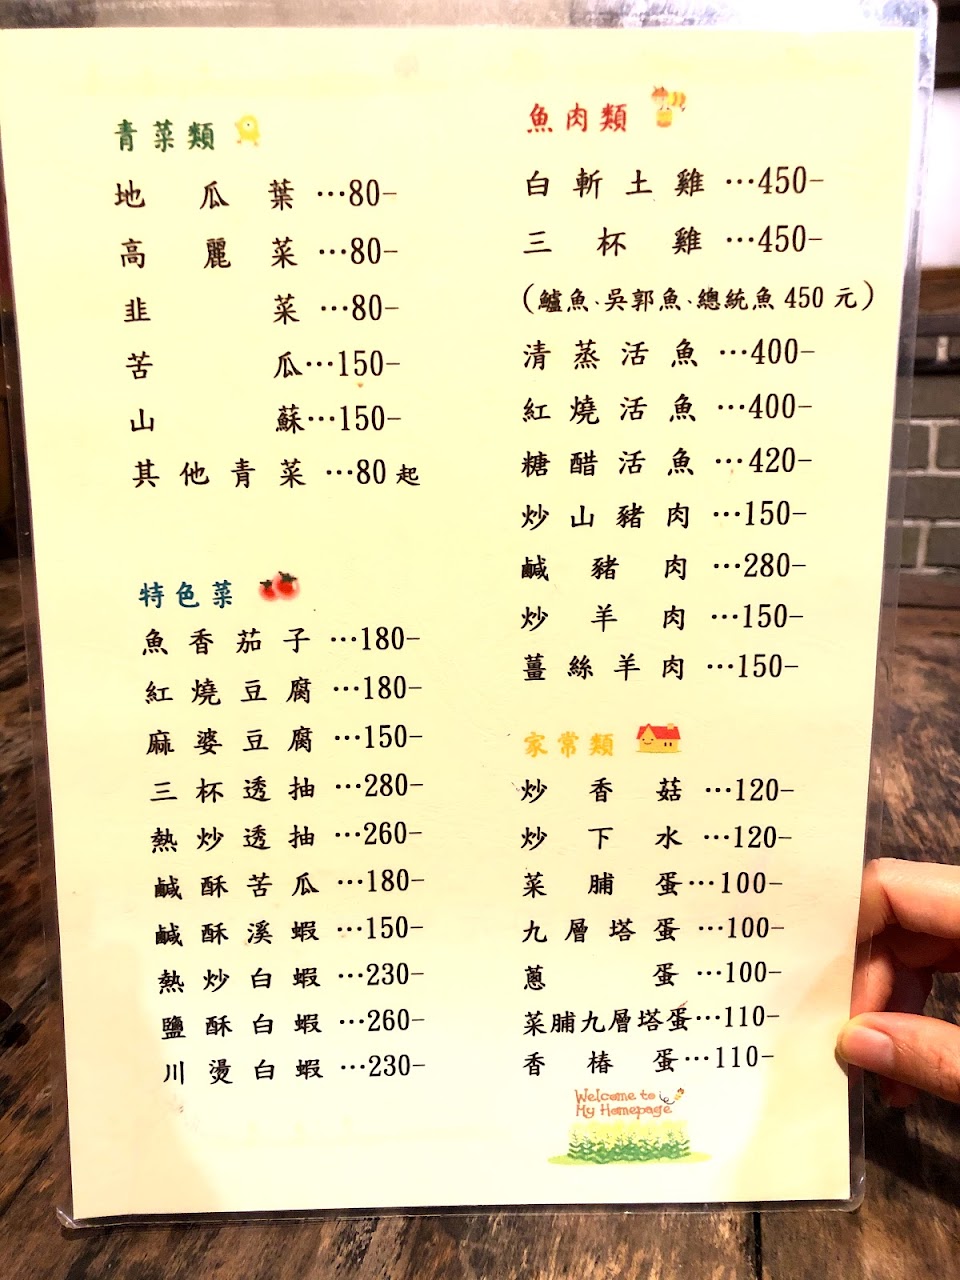 青菜類
地瓜葉…80-
高麗菜…80-
韭菜…80-
苦瓜…150-
山蘇…150-
其他青菜…80起
特色菜
魚香茄子…180-
紅燒豆腐…180-
麻婆豆腐…150-
三杯透抽…280-
熱炒透抽…260-
鹹酥苦瓜…180-
鹹酥溪蝦…150-
熱炒白蝦…230-
鹽酥白蝦…260-
川燙白蝦…230-
魚肉類
白斬土雞…450-
三杯雞…450-
(鱸魚、吳郭魚、總統魚450元)
清蒸活魚…400-
紅燒活魚…400-
糖醋活魚…420-
炒山豬肉…150-
鹹豬肉…280-
炒羊肉…150-
薑絲羊肉…150-
家常類
炒香菇…120-
炒下水…120-
菜脯蛋…100-
九層塔蛋…100-
蔥蛋…100-
菜脯九層塔蛋…110-
香椿蛋…110-
Welcome to
My Homepage